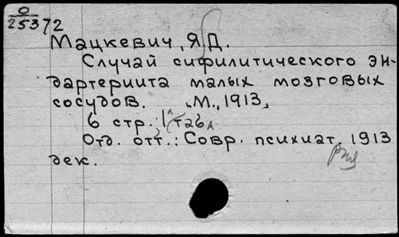 0
25372
Мацкевич, Я.Д.
Случай сифилитического эн-
дартериита малых мозговых
сосудов. М., 1913,
6 стр., 1 таб.
Отд. отт.: Совр. психиат, 1913
дек.